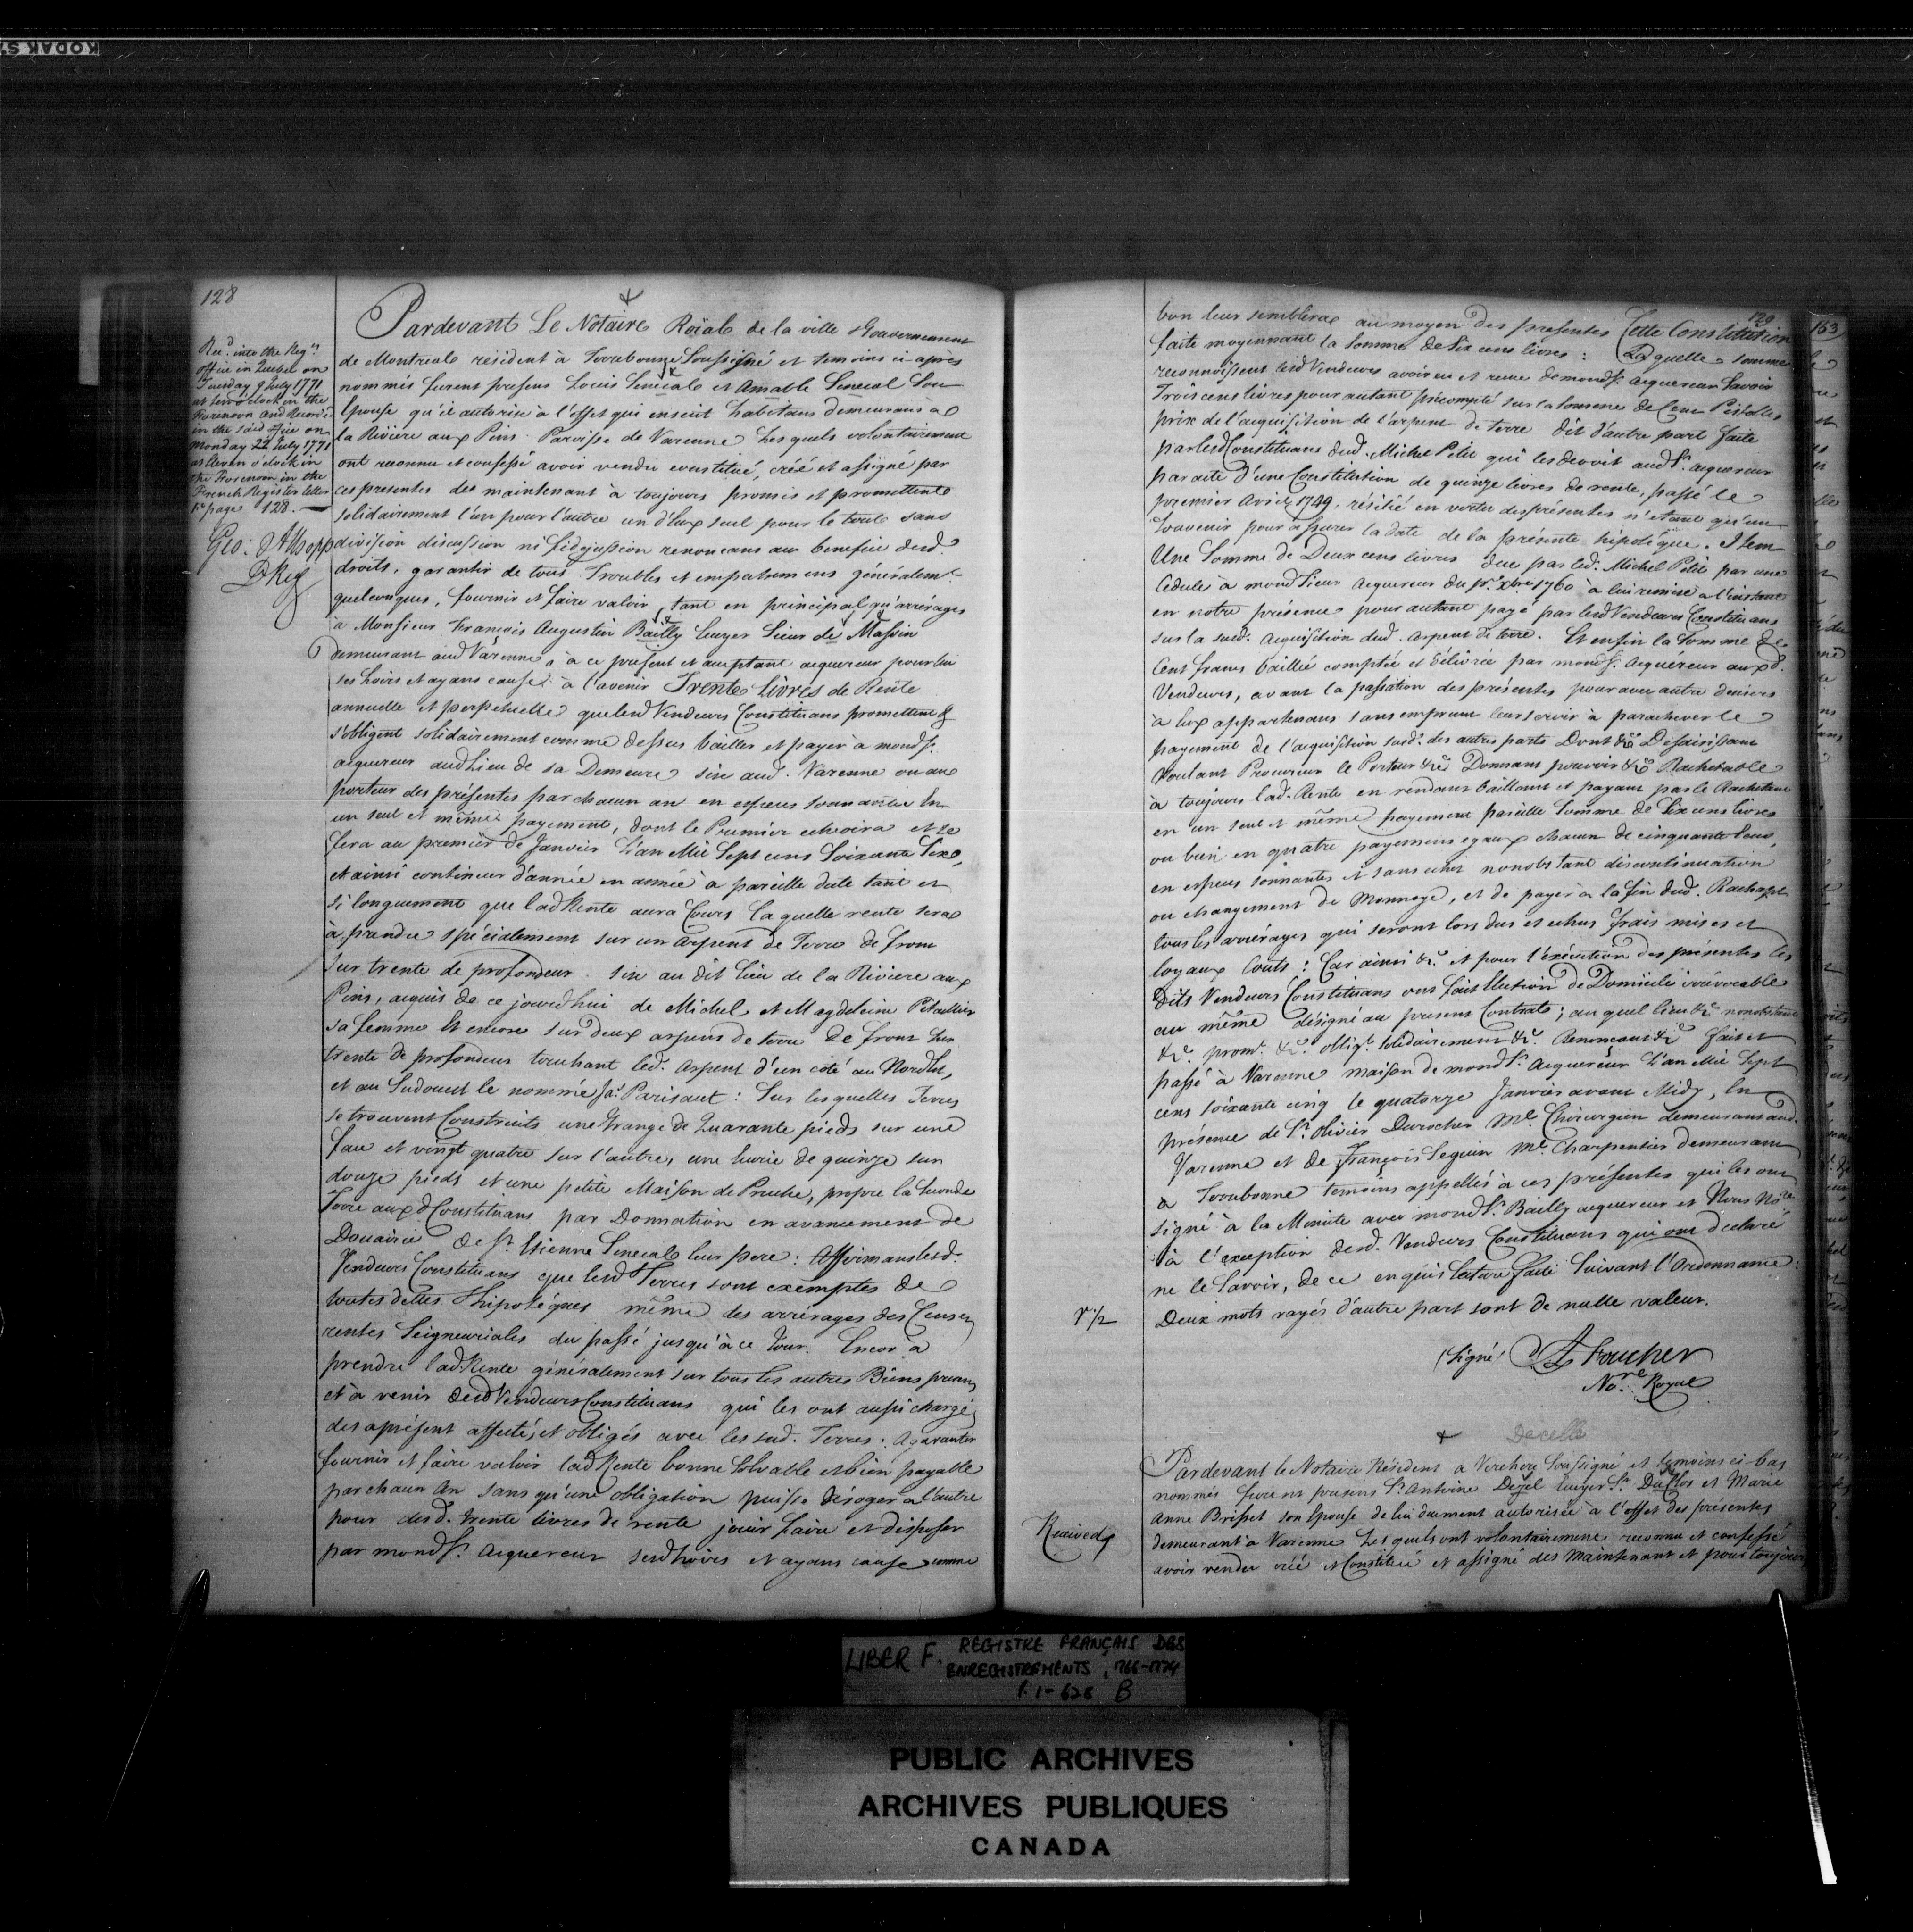 KODAK S
128
Rec.d into the Reg.rs
office in Quebec on
Tuesday 9 July 1771
at two o'clock in the
Forenoon and Record.d
in the said office on
Monday 22 July 1771
at Eleven o'clock in
the Forenoon in the
French Register letter
F. page 128.
Geo: Allsopp
D Reg
Pardevant Le Notaire Roïal de la ville & Gouvernement
de Montreal résident à Terrebonne Soussigné et temoins ci après
nommés furent presens Louis Senécal et Amable Senecal Son
Epouse qu'il autorise à l'effet qui ensuit habitans demeurans a
la Rivière aux Pins Paroisse de Varenne Lesquels volontairement
ont reconnu et confessé avoir vendu constitué, créé et assigné par
ces presentes des maintenant à toujours promis et promettent
solidairement l'un pour l'autre un d'Eux seul pour le tout sans
division discussion ni fidejussion renonçans aux benefice desd.
droits, garantir de tous Troubles et empechemens généralem.t
quelconques, fournir et faire valoir tant en principal qu'arrérages
à Monsieur François Augustin Bailly Ecuyer Sieur de Massein
demeurant aud Varenne, à ce present et acceptant acquereur pour lui
ses hoirs et ayans cause à l'avenir Trente livres de Rente
annuelle et perpetuelle que lesd Vendeurs Constituans promettent &
s'obligent solidairement comme dessus bailler et payer à mond S.r
acquereur aud Lieu de sa Demeure sise aud. Varenne ou au
porteur des présentes par chacun an en especes sonnantes En
un seul et même payement, dont le Premier echeoira et se
fera au premier de Janvier L'an Mil Sept cens Soixante Sixe,
et ainsi continuer d'année en année à pareille date tant et
si longuement que lad Rente aura Cours laquelle rente sera
à prendre spécialement sur un Arpent de Terre de front
sur trente de profondeur sise au dit lieu de la Riviere aux
Pins, acquis de ce jourd'hui de Michel et Magdeleine Petit
sa femme Et encore sur deux arpens de terre de front sur
trente de profondeur touchant led. Arpent d'un côté au Nord Est,
et au Sudouest le nommé Parisaut: Sur lesquelles Terres
se trouvent Construits une Grange de Quarante pieds sur une
face et vingt quatre sur l'autre, une Ecurie de quinze sur
douze pieds et une petite Maison de Pruche, propre la Seconde
Terre auxd Constituans par Donnation en avancement de
Douairie de S.r Etienne Senecal leur pere: Affirmans lesd.
Vendeurs Constituans que lesd Terres sont exemptes de
toutes dettes Hipotéques même des arrérages des Cens et
rentes Seigneuriales du passé jusqu'à ce Jour. Encor à
prendre lad Rente généralement sur tous les autres Biens presens
et à venir desd Vendeurs Constituans qui les ont aussi chargés
des aprésent affectés et obligés avec les sud. Terres. A garantir
fournir et faire valoir lad Rente bonne Solvable et bien payable
par chacun An sans qu'une obligation puisse déroger à l'autre
pour desd. trente livres de rente jouir faire et disposer
par mond S.r Acquereur sesd hoirs et ayans cause comme
129
bon leur semblera au moyen des presentes Cette Constitution
faite moyennant la Somme de Six cens livres: Laquelle somme
reconnoissent lesd Vendeurs avoir eu et recue de mond S.r acquereur Savoir
Trois cens livres pour autant précompté sur la Somme de Cent Pistolles
prix de l'acquisition de l'arpent de terre dit d'autre part faite
par lesd Constituans dud. Michel Petit qui les devoit aud S.r acquereur
par acte d'une Constitution de quinze livres de rente, passé le
premier Avril 1749, résilié en vertu des présentes n'etant qu'un
Souvenir pour assurer la date de la présente hipotéque. Item
Une Somme de Deux cens livres due par led. Michel Petit par une
Cedule à mond Sieur Acquereur du p.r xbre 1760 à lui remise a l'instant
en notre présence pour autant payé par lesd Vendeurs Constituans
sur la susd. Acquisition dud. Arpent de terre. Et enfin la Somme de
Cent francs baillée comptée et délivrée par mond S.r Acquéreur auxd.
Vendeurs, avant la passation des présentes pour avec autre deniers
à Eux appartenans sans emprunt leur servir à parachever le
payement de l'acquisition susd. des autres parts Dont &c Desaisissant
Voulant Procureur le Porteur &c Donnans pouvoir &c Rachetable
à toujours lad. Rente en rendant baillant et payant par le Rachetant
en un seul et même payement pareille Somme de Six cens livres
ou bien en quatre payemens egaux chacun de cinquante Ecus,
en especes sonnantes et sans echet nonobstant discontinuation
ou changement de Monnoye, et de payer à la fin dud. Rachapt
tous les arrérages qui seront lors dus et echus frais mises et
loyaux Couts: Car ainsi &c. et pour l'éxécution des présentes les
dits Vendeurs Constituans ont fait Election de Domicile irrévocable
au même désigné au present Contrat; auquel lieu &c nonobstant
&c. prom.t &c. oblig.t Solidairement &c. Renonçant &c fait et
passé à Varenne maison de mond S.r Acquereur L'an Mil Sept
cens soixante cinq le quatorze Janvier avant Midy, En
présence de S.r Olivier Durocher M.e Chirurgien demeurans aud.
Varenne et de François Seguin M.e Charpentier demeurant
à Terrebonne temoins appellés à ces présentes qui les ont
signé à la Minute avec mond S.r Bailly acquereur et Nous No.re
à l'exception desd. Vendeurs Constituans qui ont declaré
ne le Savoir, de ce enquis lecture faite Suivant l'Ordonnance:
Deux mots rayés d'autre part sont de nulle valeur.
(Signé) A Foucher
No.re Royal
Decelle
Pardevant le Notaire Résident a Verchere Soussigné et temoins ci-bas
nommés furent presens S.r Antoine Dezel Ecuyer S.r DuClos et Marie
Anne Brisset son Epouse de lui duement autorisée à l'effet des présentes
demeurant à Varenne Lesquels ont volontairement reconnu et confessé
avoir vendu créé et Constitué et assigné des Maintenant et pour toujours
Received
163
LIBER F. REGISTRE FRANÇAIS DES
ENREGISTREMENTS, 1766-1774
P. 1-628 B
PUBLIC ARCHIVES
ARCHIVES PUBLIQUES
CANADA